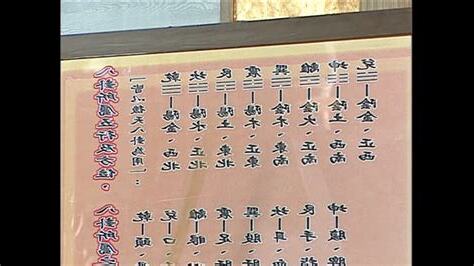 八卦所屬五行及方位。
（皆以後天八卦為用）：
乾☰—陽金、西北
坎☵—陽水、正北
艮☶—陽土、東北
震☳—陽木、正東
巽☴—陰木、東南
離☲—陰火、正南
坤☷—陰土、西南
兌☱—陰金、正西
八卦所屬
乾—頭、
兌—口、
離—眼、
震—足、
巽—股、
坎—耳、
艮—手、指
坤—腹、脾